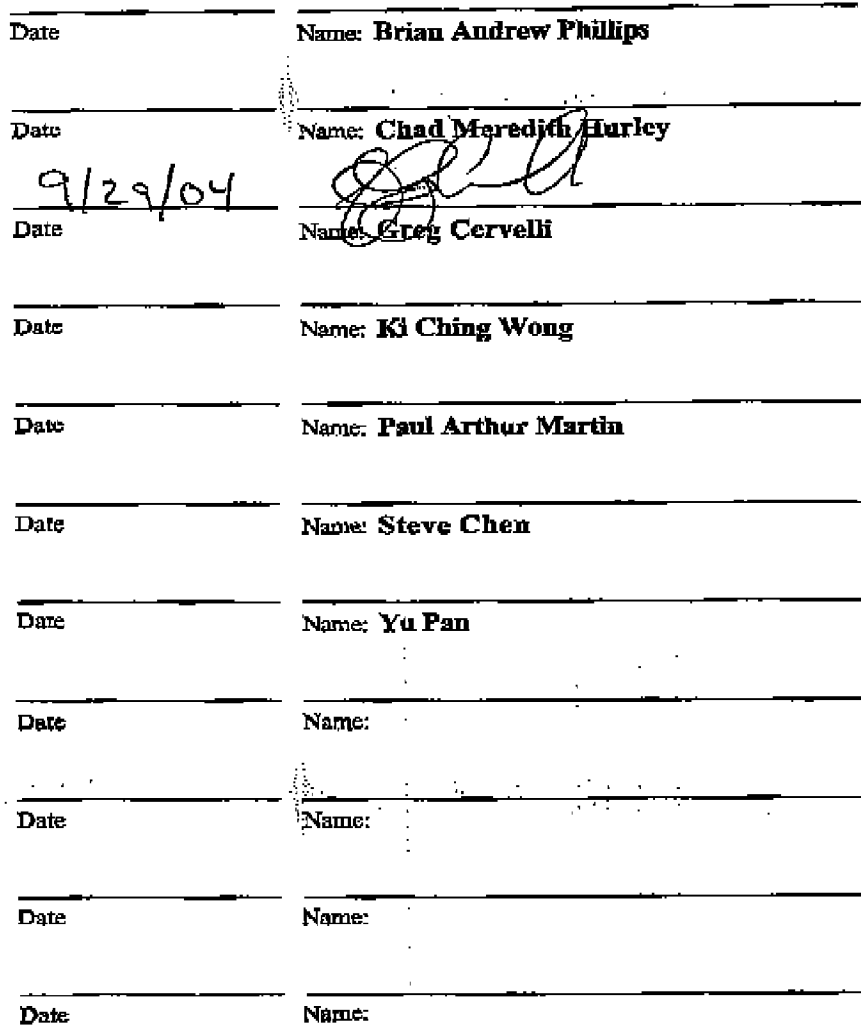 Date Name: Brian Andrew Phillips
Date Name: Chad Meredith Hurley
9/29/04
Date Name: Greg Cervelli
Date Name: Ki Ching Wong
Date Name: Paul Arthur Martin
Date Name: Steve Chen
Date Name: Yu Pan
Date Name:
Date Name:
Date Name:
Date Name: